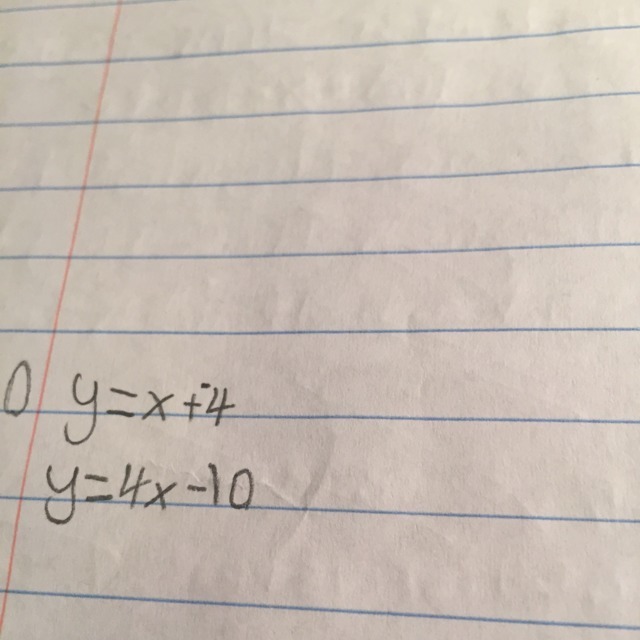 0 y=x+-4
y=4x-10